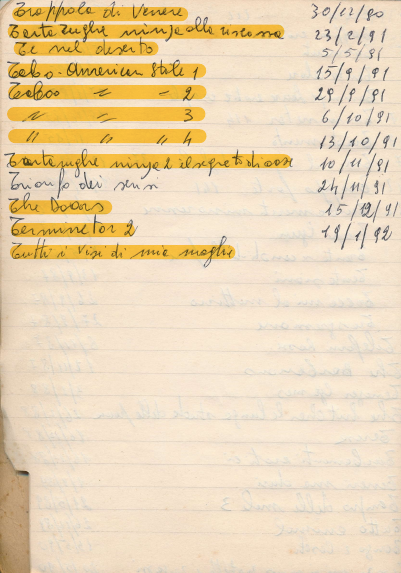 Trappola di Venere 30/12/90
Tartarughe ninja alla riscossa 23/2/91
Te nel deserto 5/5/91
Taboo-American Stile 1 15/9/91
Taboo " " 2 29/9/91
" " 3 6/10/91
" " 4 13/10/91
Tartarughe ninja 2 il segreto di ooze 10/11/91
Trionfo dei sensi 24/11/91
The Doors 15/12/91
Terminator 2 19/1/92
Tutti i vizi di mia moglie